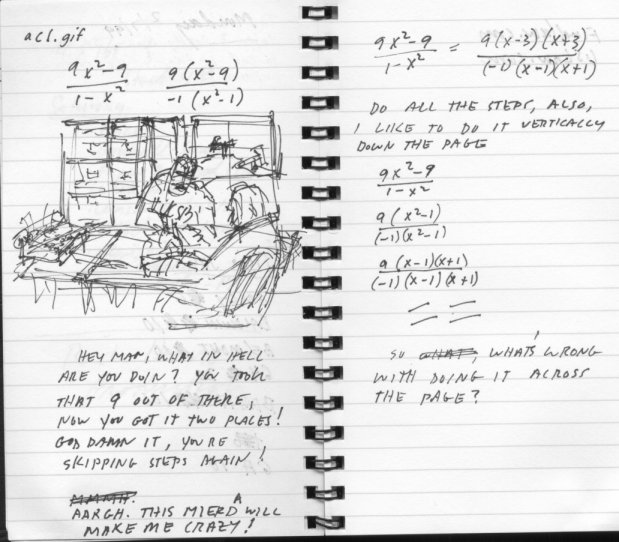 acl.gif
9x²-9 9(x²-9)
1-x² -1(x²-1)
HEY MAN, WHAT IN HELL
ARE YOU DOIN? YOU TOOK
THAT 9 OUT OF THERE,
NOW YOU GOT IT TWO PLACES!
GOD DAMN IT, YOU'RE
SKIPPING STEPS AGAIN!
AARGH. THIS MIERDA WILL
MAKE ME CRAZY!
9x²-9 = 9(x-3)(x+3)
1-x² (-1)(x-1)(x+1)
DO ALL THE STEPS, ALSO,
I LIKE TO DO IT VERTICALLY
DOWN THE PAGE
9x²-9
1-x²
9(x²-1)
(-1)(x²-1)
9(x-1)(x+1)
(-1)(x-1)(x+1)
SO WHAT, WHAT'S WRONG
WITH DOING IT ACROSS
THE PAGE?